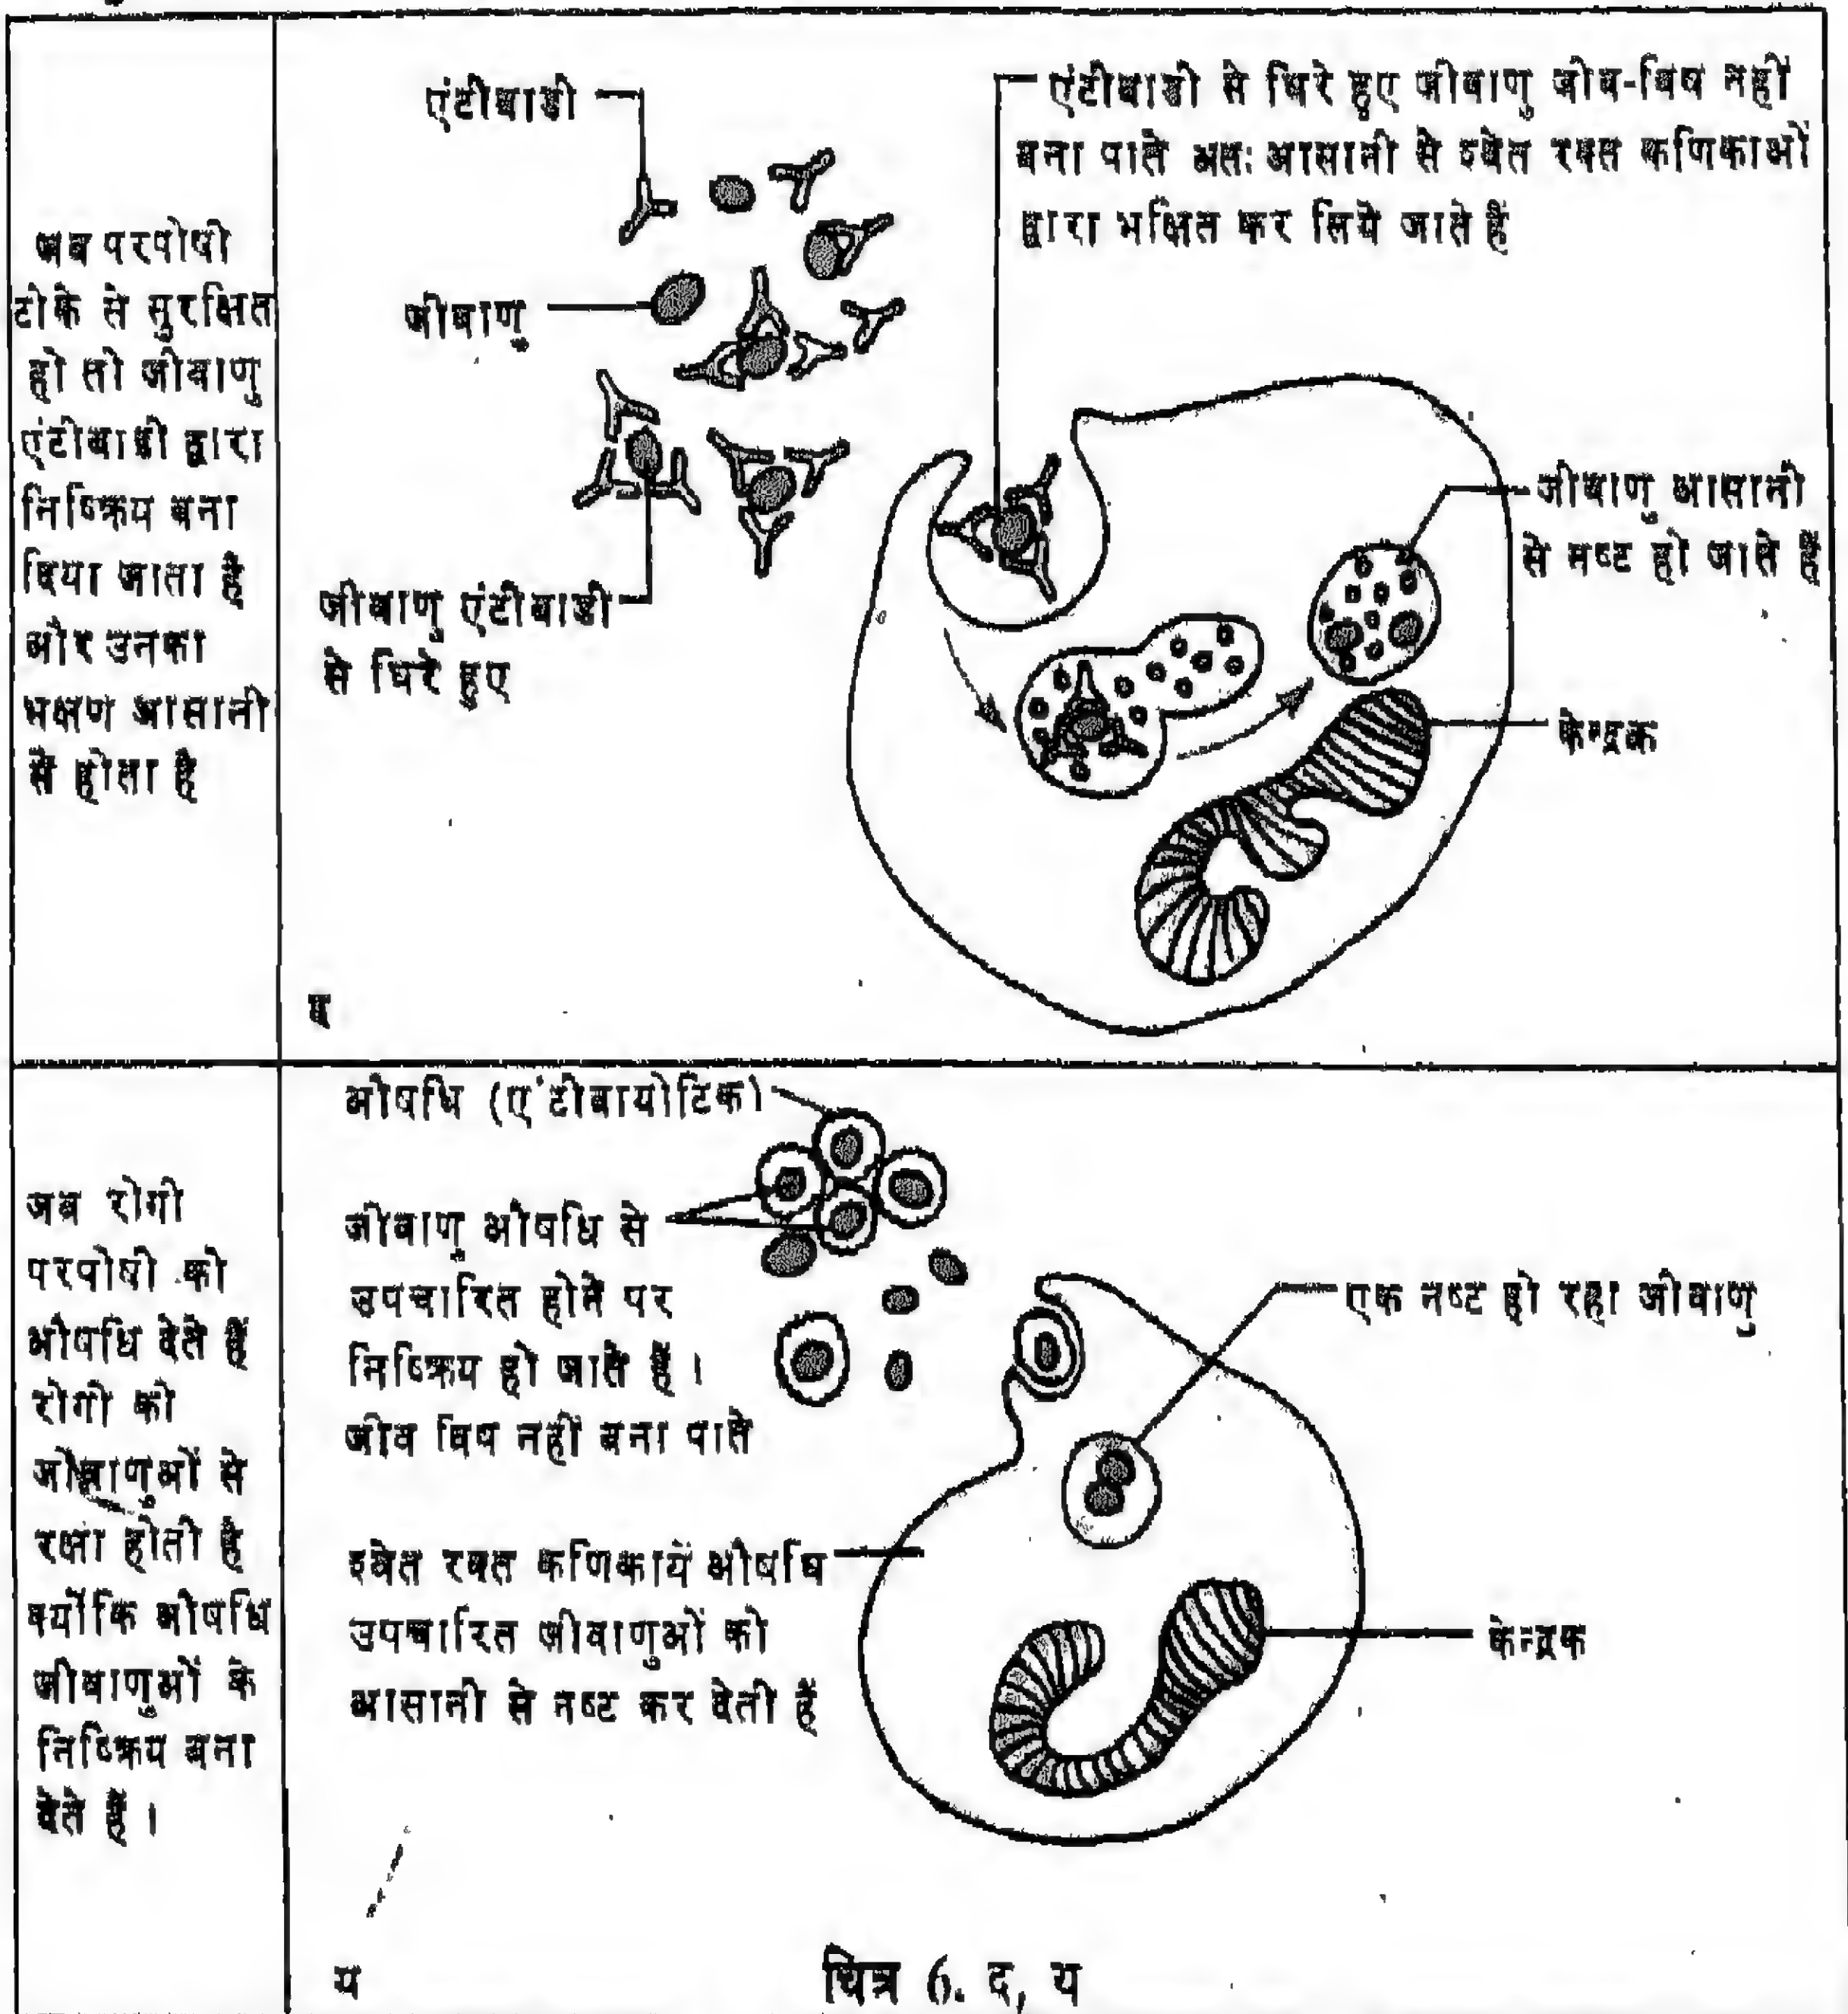 जब परपोषी
टीके से सुरक्षित
हो तो जीवाणु
एंटीबाडी द्वारा
निष्क्रिय बना
दिया जाता है
और उनका
भक्षण आसानी
से होता है
एंटीबाडी
जीवाणु
जीवाणु एंटीबाडी
से घिरे हुए
एंटीबाडी से घिरे हुए जीवाणु जीव-विष नहीं
बना पाते अतः आसानी से श्वेत रक्त कणिकाओं
द्वारा भक्षित कर लिये जाते हैं
जीवाणु आसानी
से नष्ट हो जाते हैं
केन्द्रक
द
जब रोगी
परपोषी को
औषधि देते हैं
रोगी को
जीवाणुओं से
रक्षा होती है
क्योंकि औषधि
जीवाणुओं के
निष्क्रिय बना
देते हैं ।
औषधि (एंटीबायोटिक)
जीवाणु औषधि से
उपचारित होने पर
निष्क्रिय हो जाते हैं ।
जीव विष नहीं बना पाते
श्वेत रक्त कणिकायें औषधि
उपचारित जीवाणुओं को
आसानी से नष्ट कर देती हैं
एक नष्ट हो रहा जीवाणु
केन्द्रक
य
चित्र 6. द, य